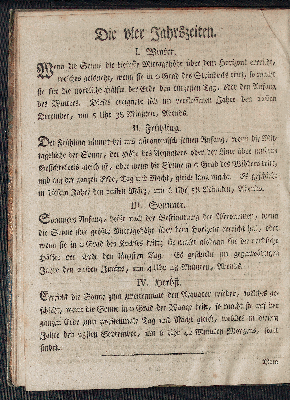 Die vier Jahrszeiten.
I. Winter.
Wenn die Sonne, die tiefste Mittagshöhe über dem Horizont erreicht,
welches geschieht, wenn sie in 0 Grad des Steinbocks tritt, so macht
sie für die nordliche Hälfte der Erde den kürzesten Tag, oder den Anfang
des Winters. Dieses ereignete sich im verflossenen Jahre den 21sten
December, um 5 Uhr 38 Minuten, Abends.
II. Frühling.
Der Frühling nimmt bey uns astronomisch seinen Anfang, wenn die Mit-
tägliche der Sonne, der Höhe des Aequators oder der Linie über unserm
Gesichtskreis gleich ist, oder wenn die Sonne in 0 Grad des Widders tritt,
und auf der ganzen Erde, Tag und Nacht, gleich lang macht. Es geschieht
in diesem Jahre den 20sten März, um Uhr Minuten, Abends.
III. Sommer.
Sommers Anfang, heißt nach der Bestimmung der Astronomen, wenn
die Sonne ihre größte Mittagshöhe über dem Horizont erreicht hat, oder
wenn sie in 0 Grad des Krebses tritt; sie macht alsdann für die nordliche
Hälfte der Erde den längsten Tag. Es geschieht im gegenwärtigen
Jahre den 21sten Junius, um 4 Uhr Minuten, Abends.
IV. Herbst.
Erreicht die Sonne zum zweytenmale den Aequator wieder, welches ge-
schieht, wann die Sonne in 0 Grad der Waage tritt, so macht sie auf der
ganzen Erde zum zweytenmale Tag und Nacht gleich, welches in diesem
Jahre den September, um 6 Uhr 42 Minuten Morgens, statt
findet.